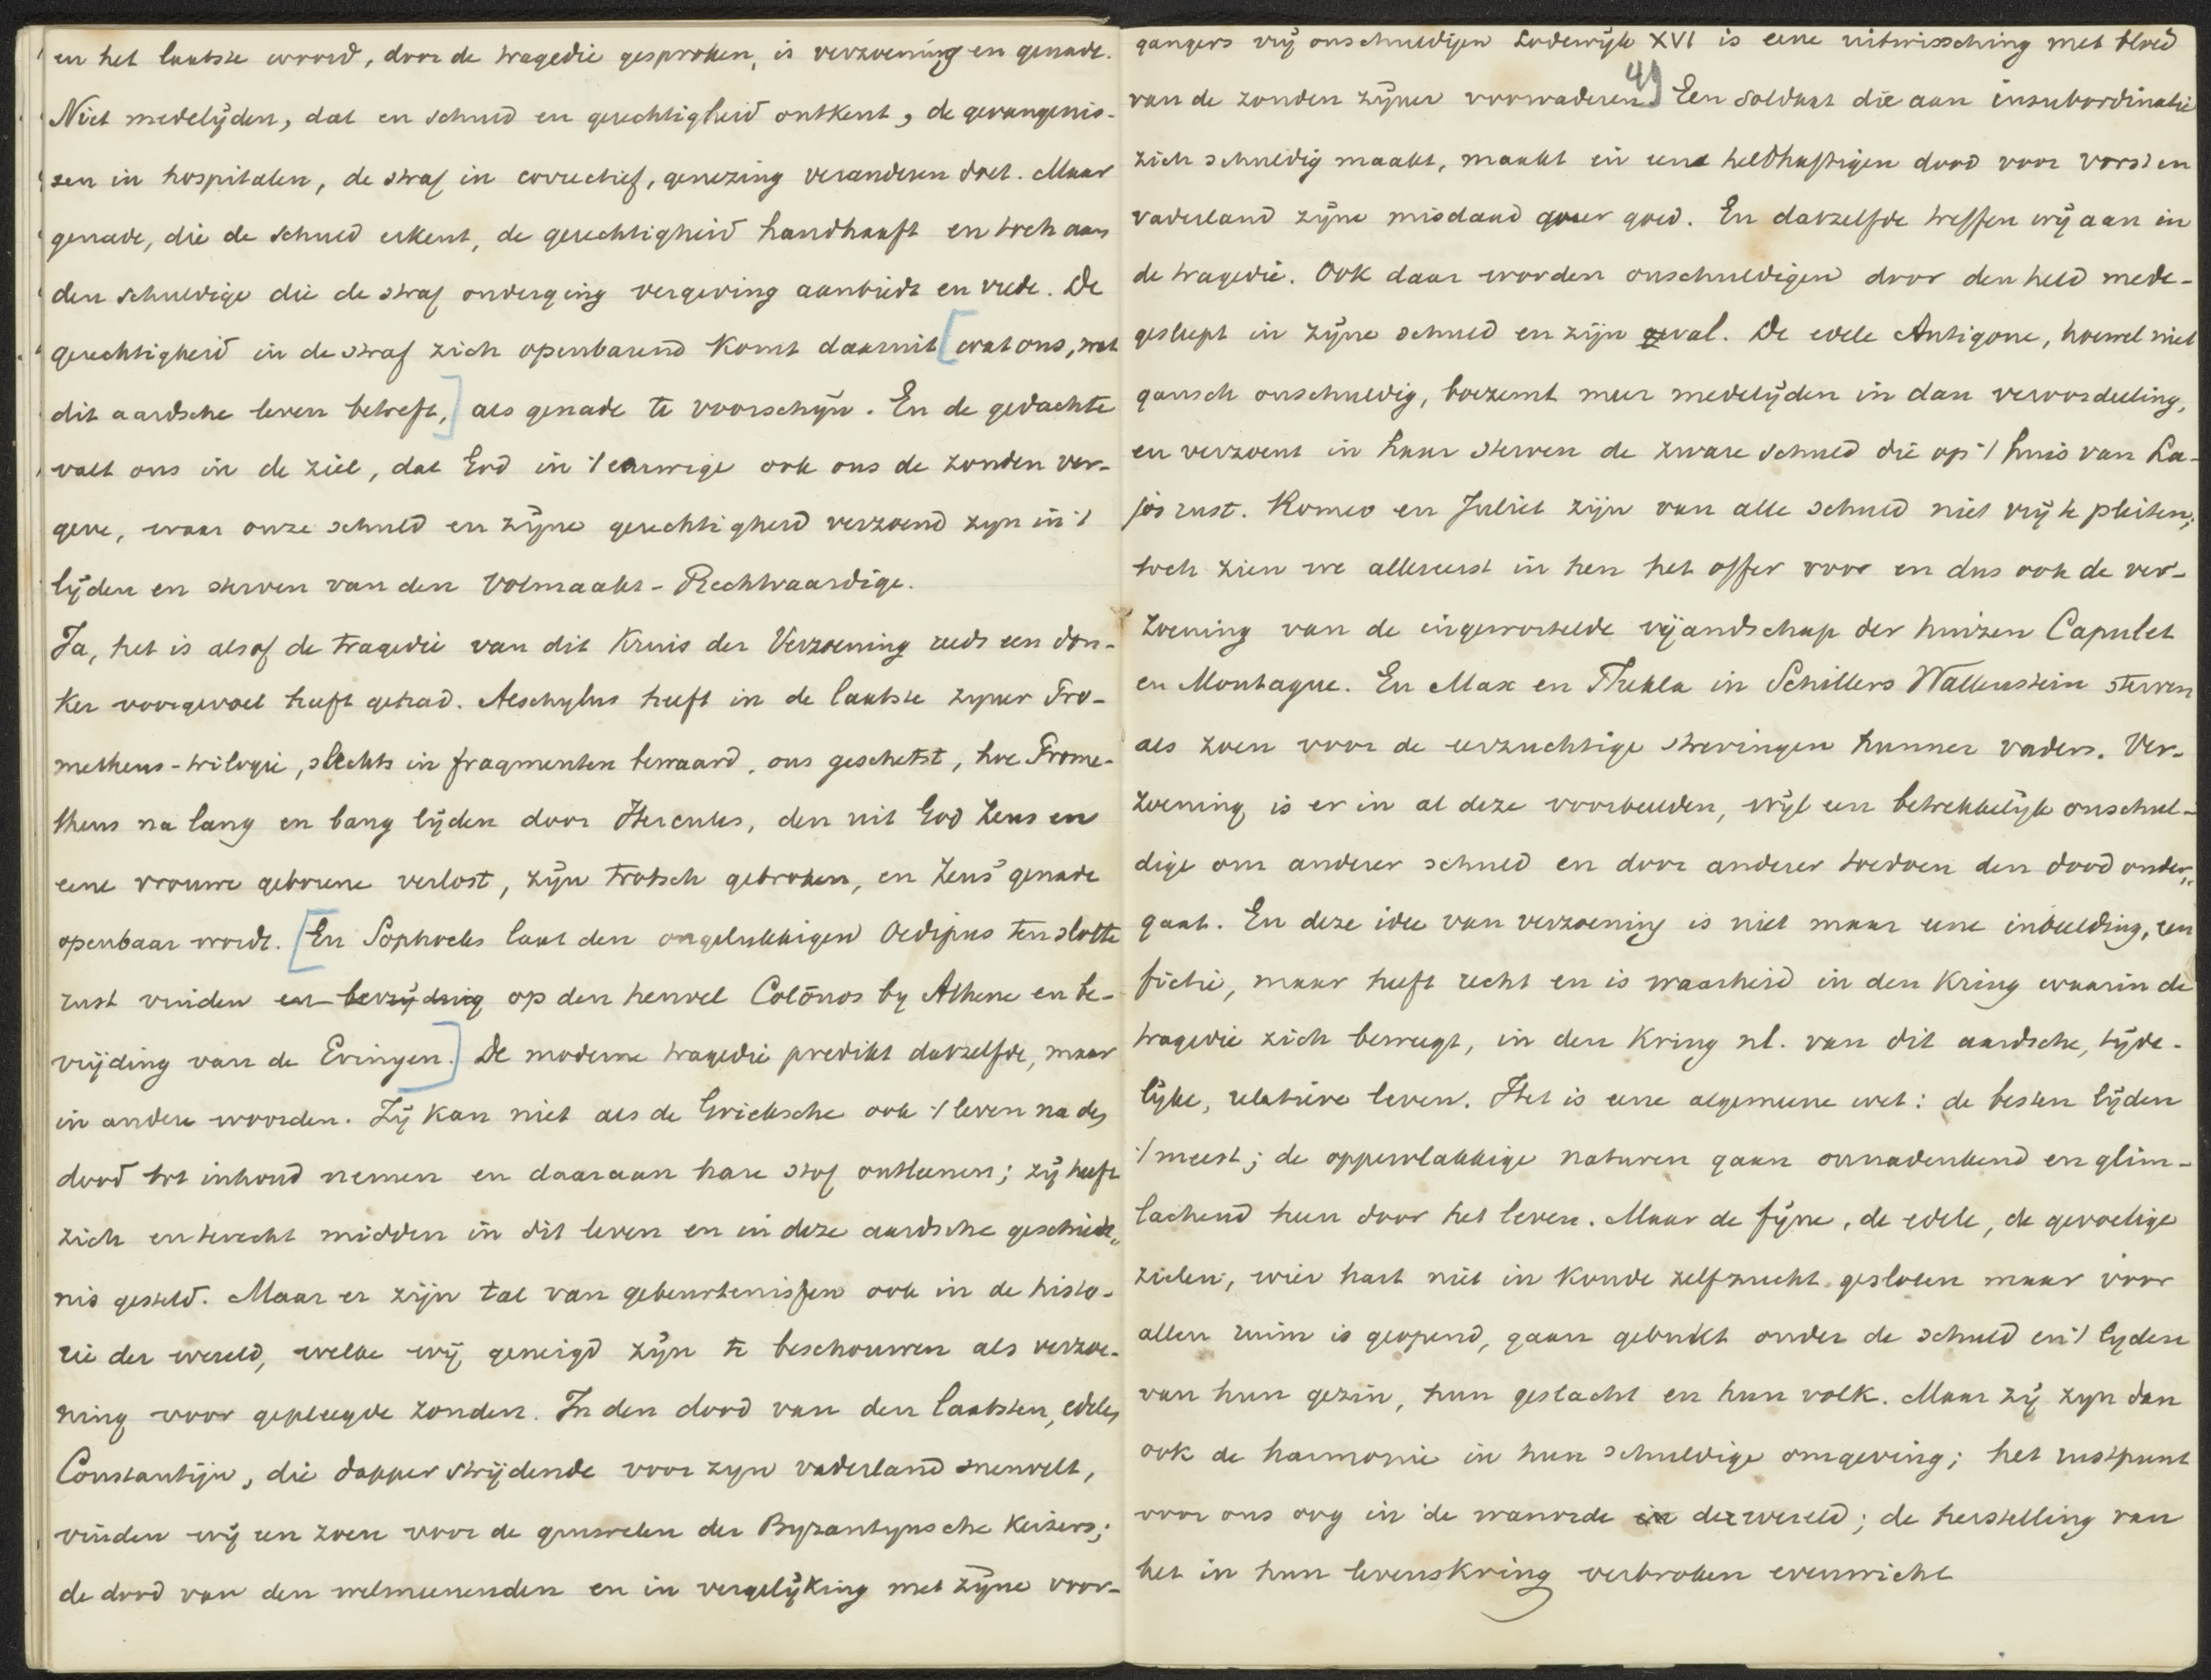 en het laatste woord, door de tragedie gesproken, is verzoening en genade.
Niet medelijden, dat en schuld en gerechtigheid ontkent, de gevangenis-
sen in hospitalen, de straf in correctief, genezing veranderen doet. Maar
genade, die de schuld erkent, de gerechtigheid handhaaft en toch aan
den schuldige die de straf onderging vergeving aanbiedt en vrede. De
gerechtigheid in de straf zich openbarend komt daaruit [wat ons, wat
dit aardsche leven betreft,] als genade te voorschijn. En de gedachte
valt ons in de ziel, dat God in 't eeuwige ook ons de zonden ver-
geve, waar onze schuld en zijne gerechtigheid verzoend zyn in 't
lijden en sterven van den Volmaakt-Rechtvaardige.
Ja, het is alsof de tragedie van dit Kruis der Verzoening reeds een don-
ker voorgevoel heeft gehad. Aeschylus heeft in de laatste zyner Pro-
metheus-trilogie, slechts in fragmenten bewaard, ons geschetst, hoe Prome-
theus na lang en bang lijden door Hercules, den uit God Zeus en
eene vrouwe geborene verlost, zijn trotsch gebroken, en Zeus' genade
openbaar wordt. [En Sophocles laat den ongelukkigen Oedipus ten slotte
rust vinden en op den heuvel Colōnos by Athene en be-
vrijding van de Erinyen.] De moderne tragedie predikt datzelfde, maar
in andere woorden. Zij kan niet als de Grieksche ook 't leven na den
dood tot inhoud nemen en daaraan hare stof ontleenen; zij heeft
zich en terecht midden in dit leven en in deze aardsche geschiede„
nis gesteld. Maar er zijn tal van gebeurtenissen ook in de histo-
rie der wereld, welke wij geneigd zijn te beschouwen als verzoe-
ning voor gepleegde zonden. In den dood van den laatsten, edelen
Constantijn, die dapper strijdende voor zyn vaderland sneuvelt,
vinden wij een zoen voor de gruwelen der Byzantynsche Keizers;
de dood van den welmeenenden en in vergelijking met zijne voor-
gangers vrij onschuldigen Lodewijk XVI is eene uitwissching met bloed
van de zonden zijner voorvaderen. 4) Een soldaat die aan insubordinatie
zich schuldig maakt, maakt in een heldhaftigen dood voor vorst en
vaderland zijne misdaad weer goed. En datzelfde treffen wij aan in
de tragedie. Ook daar worden onschuldigen door den held mede-
gesleept in zijne schuld en zijn val. De edele Antigone, hoewel niet
gansch onschuldig, boezemt meer medelijden in dan veroordeeling,
en verzoent in haar sterven de zware schuld die op 't huis van La-
jos rust. Romeo en Juliet zijn van alle schuld niet vrij te pleiten;
toch zien we allereerst in hen het offer voor en dus ook de ver-
zoening van de ingewortelde vijandschap der huizen Capulet
en Montague. En Max en Thekla in Schillers Wallenstein sterven
als zoen voor de eerzuchtige strevingen hunner vaders. Ver-
zoening is er in al deze voorbeelden, wijl een betrekkelijk onschul-
dige om anderer schuld en door anderer toedoen den dood onder„
gaat. En deze idee van verzoening is niet maar eene inbeelding, een
fictie, maar heeft recht en is waarheid in den Kring waarin de
tragedie zich beweegt, in den Kring nl. van dit aardsche, tijde-
lijke, relatieve leven. Het is eene algemeene wet: de besten lijden
't meest; de oppervlakkige naturen gaan onnadenkend en glim-
lachend heen door het leven. Maar de fijne, de edele, de gevoelige
zielen, wier hart niet in koude zelfzucht gesloten maar voor
allen ruim is geopend, gaan gebukt onder de schuld en 't lyden
van hun gezin, hun geslacht en hun volk. Maar zij zyn dan
ook de harmonie in hun schuldige omgeving; het rustpunt
voor ons oog in de wanorde der wereld; de herstelling van
het in hun levenskring verbroken evenwicht